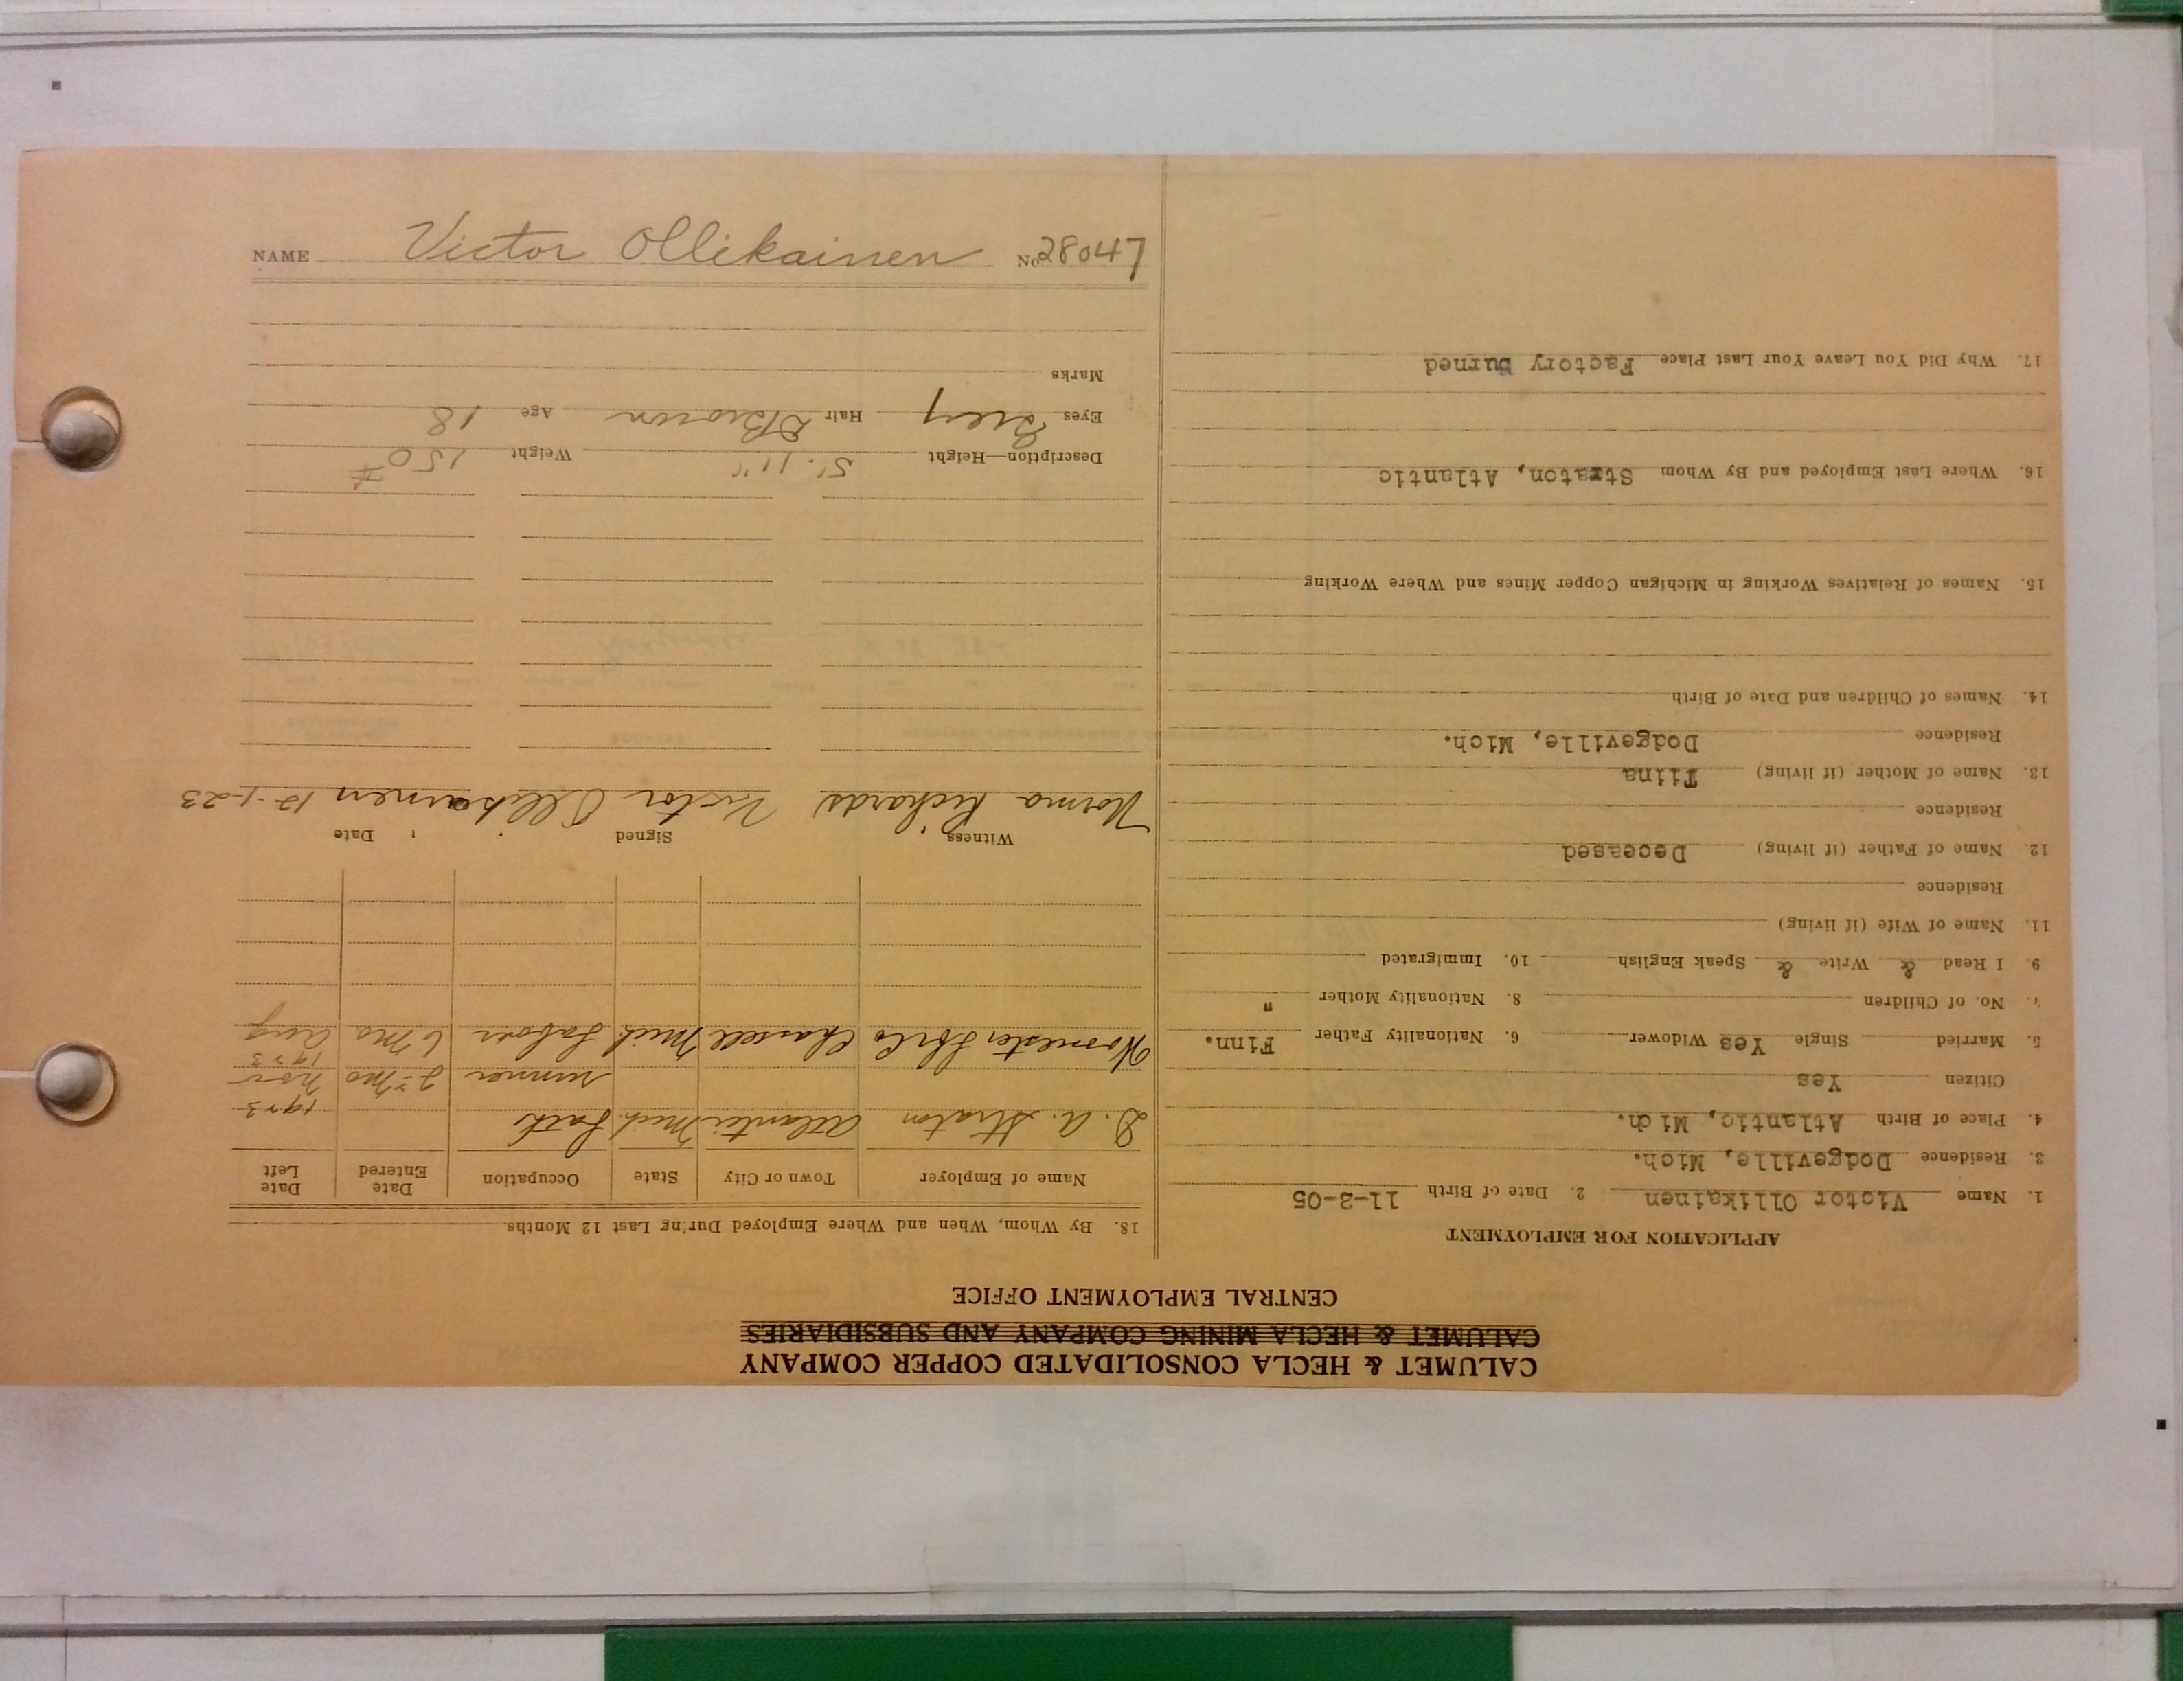 CALUMET & HECLA CONSOLIDATED COPPER COMPANY
CALUMET & HECLA MINING COMPANY AND SUBSIDIARIES
CENTRAL EMPLOYMENT OFFICE
APPLICATION FOR EMPLOYMENT
1. Name Victor Ollikainen 2. Date of Birth 11-3-05
3. Residence Dodgeville, Mich.
4. Place of Birth Atlantic, Mich.
Citizen Yes
5. Married Single Yes Widower 6. Nationality Father Finn.
7. No. of Children 8. Nationality Mother "
9. I Read & Write & Speak English 10. Immigrated
11. Name of Wife (if living)
Residence
12. Name of Father (if living) Deceased
Residence
13. Name of Mother (if living) Tiina
Residence Dodgeville, Mich.
14. Names of Children and Date of Birth
15. Names of Relatives Working in Michigan Copper Mines and Where Working
16. Where Last Employed and By Whom Straton, Atlantic
17. Why Did You Leave Your Last Place Factory burned
18. By Whom, When and Where Employed During Last 12 Months
Name of Employer Town or City State Occupation Date Entered Date Left
D. A. Straton Atlantic Mich Lath 1923
runner 2 Mo Nov
1923
Worcester Chassell Mich Laborer 6 Mo Aug
Witness Signed Date
Norma Richards Victor Ollikainen 12-1-23
Description—Height 5'.11" Weight 150#
Eyes Grey Hair D Brown Age 18
Marks
NAME Victor Ollikainen No 28047